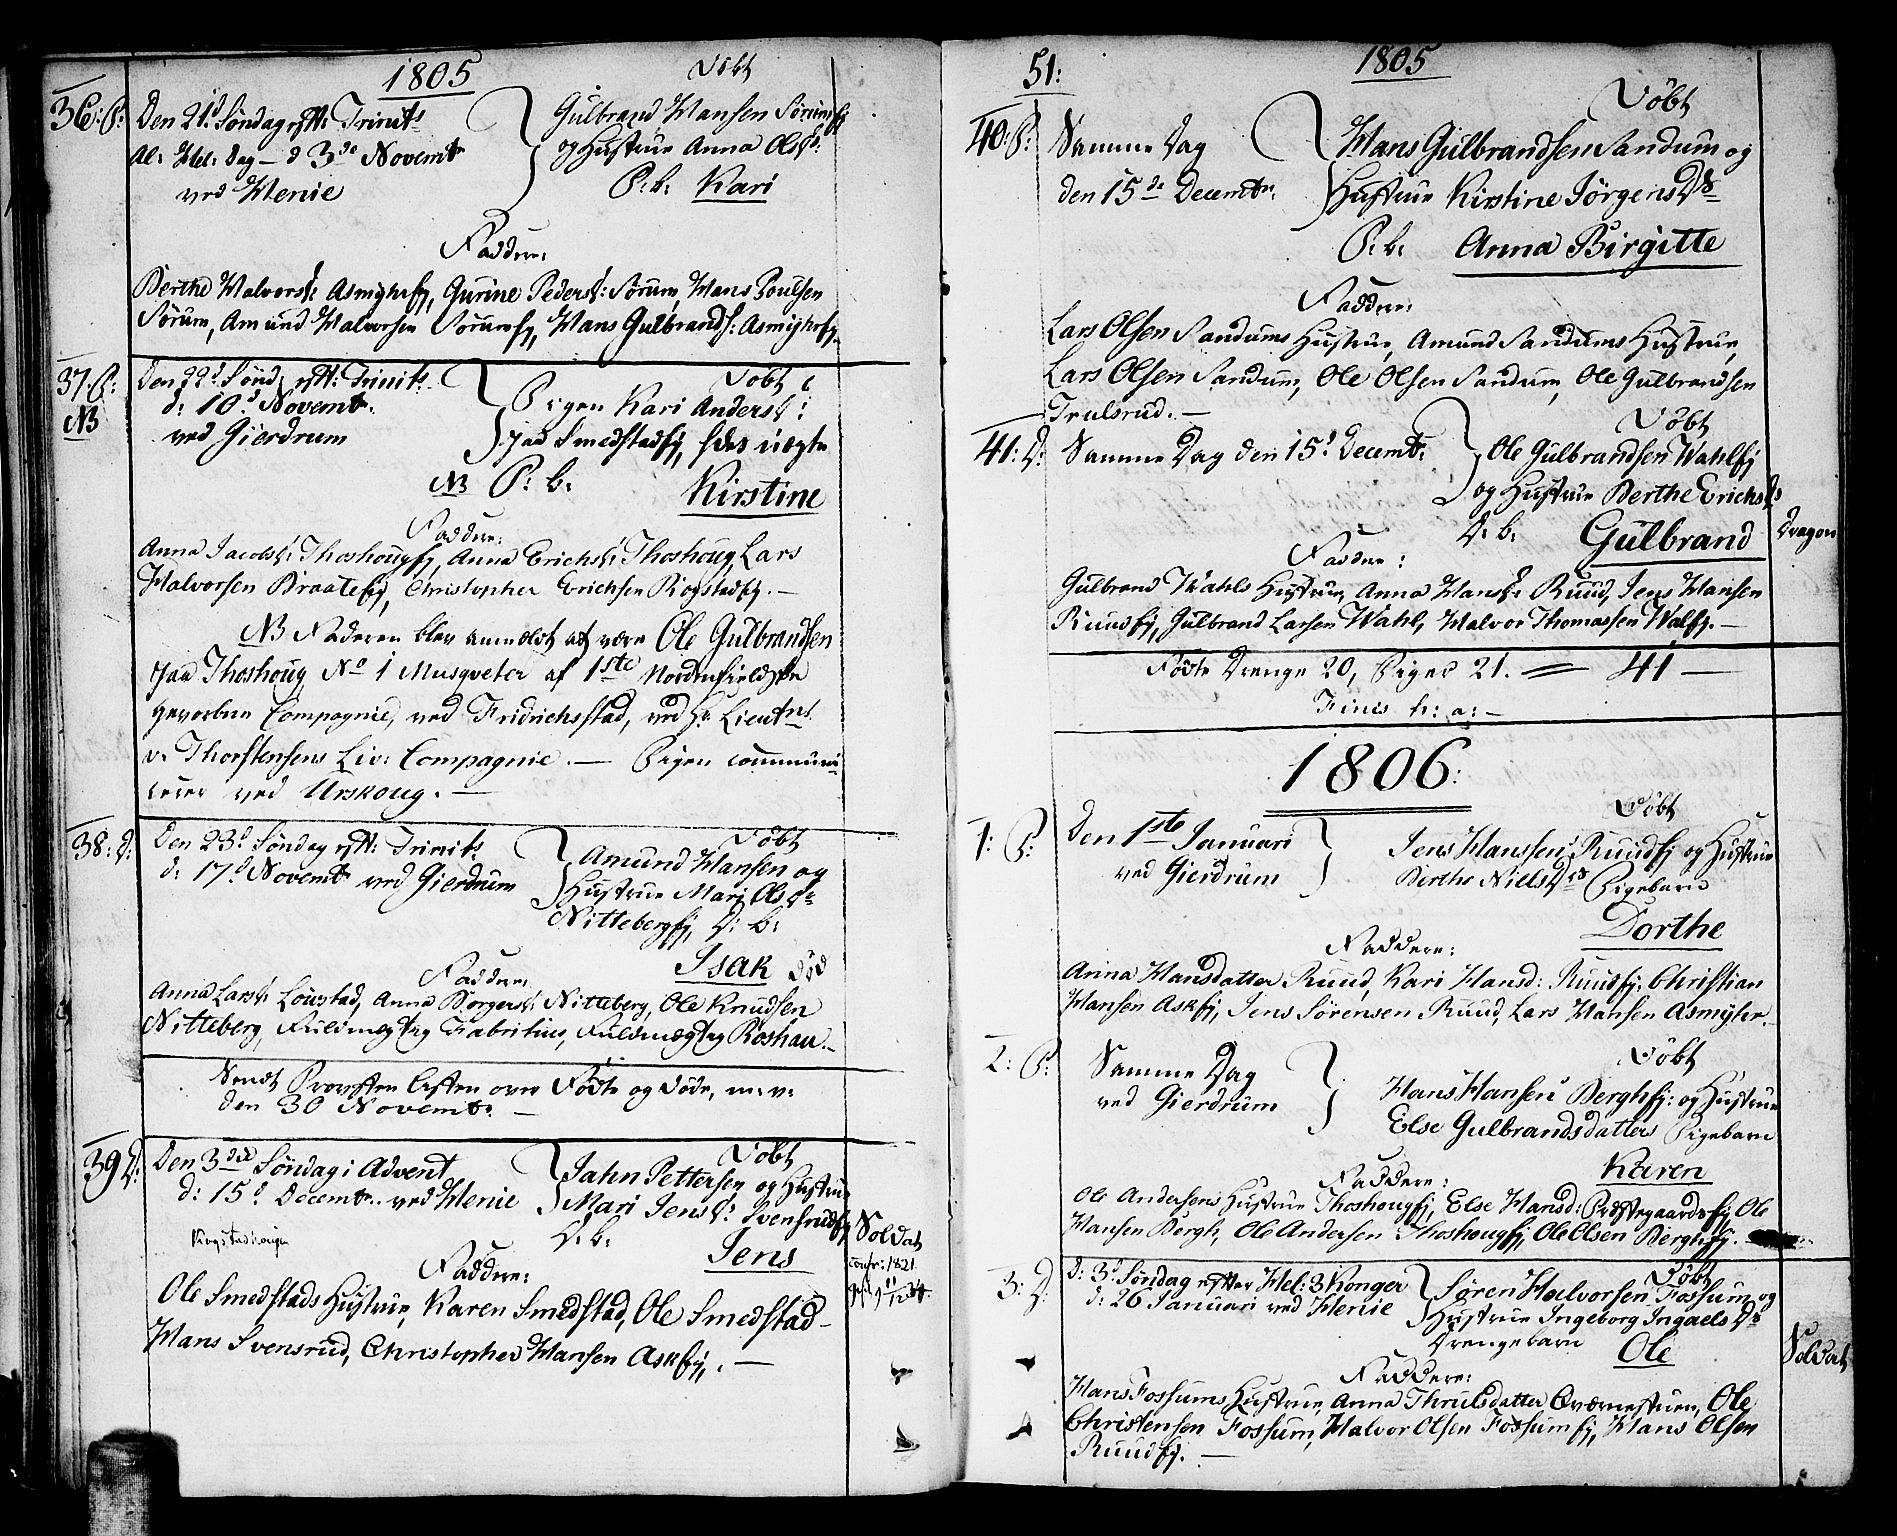 1805
Döbt
36: P: Den 21d Söndag eftr: Trinits
Al: Hel: Dag – d 3de Novembr
ved Henie
Gulbrand Hansen Sörumsej
og Hustrue Anna Olsdr:
P: b: Kari
Faddere:
Berthe Halvorsd: Asmyhrej, Gurine Pedersd: Sörum, Hans Poulsen
Sörum, Amund Halvorsen Sörumej, Hans Gulbrands: Asmyhrej.
37: P:
NB
Den 22d Sönd: eftr: Trinits
d: 10d Novembr:
ved Gierdrum
Döbt
Pigen Kari Andersd:
paa Smedstadej, hdes uægte
NB P: b: Kirstine
Faddere:
Anna Jacobsd: Thoshougej, Anna Erichsd: Thoshoug, Lars
Halvorsen Braateej, Christopher Erichsen Kogstadej. –
NB Faderen blev anmeldt at være Ole Gulbrandsen
paa Thoshoug No 1 Musqveter af 1ste Nordenfieldske
gevorbne Compagnie, ved Fridrichsstad, ved Hr Lieutns
v. Thorstensens Liv: Compagnie. — Pigen communi-
cerer ved Urskoug. –
38: D: Den 23d Söndag eftr: Trinits
d: 17d Novembr ved Gierdrum
Döbt
Amund Hansen og
Hustrue Mari Olsdr
Nittebergej, D: b:
Isak död
Faddere,
Anna Larsd: Löustad, Anna Borgersd: Nitteberg, Ole Knudsen
Nitteberg, Fuldmægtig Fabritius, Fuldmægtig Roshau. –
Sendt Provsten Listen over Födte og Döde, m: v:
den 30 Novembr. –
39 D: Den 3die Söndag i Advent
d: 15d Decembr. ved Henie
Döbt
Jahn Pettersen og Hustrue
Mari Jensd: Svensrudej
D: b:
Jens
Soldat
confr: 1821
Faddere:
Ole Smedstads Hustrue, Karen Smedstad, Ole Smedstad
Hans Svensrud, Christopher Hansen Askej. —
51:
1805
40: P: Samme Dag
den 15de Decembr:
Döbt
Hans Gulbrandsen Sandum og
Hustrue Kirstine Jörgens Dr
P: b: Anna Birgitte
Faddere:
Lars Olsen Sandums Hustrue, Amund Sandums Hustrue,
Lars Olsen Sandum, Ole Olsen Sandum, Ole Gulbrandsen
Trulsrud. –
41: D: Samme Dag den 15d Decembr:
Döbt
Ole Gulbrandsen Wahlej
og Hustrue Berthe Erichsds
D: b: Gulbrand
Dragon
Faddere:
Gulbrand Wahls Hustrue, Anna Hansdr: Ruud, Jens Hansen
Ruudej, Gulbrand Larsen Wahl, Halvor Thomassen Walej. –
Födte Drenge 20, Piger 21. = 41 —
Finis h: a: –
1806:
1: P: Den 1ste Januari
ved Gierdrum
Döbt
Jens Hanssen Ruudej og Hustrue
Berthe Niels Drs Pigebarn
Dorthe
Faddere:
Anna Hansdatter Ruud, Kari Hansd: Ruudej. Christian
Hansen Askej, Jens Sörensen Ruud, Lars Hansen Asmyhr.
2: P: Samme Dag
ved Gierdrum
Döbt
Hans Hansen Berghej: og Hustrue
Else Gulbrandsdatters Pigebarn
Karen
Faddere:
Ole Andersens Hustrue Thoshougej, Else Hansd: Præstegaardsej, Ole
Hansen Bergh, Ole Andersen Thoshougej, Ole Olsen Berghej.
3: D: D: 3d Söndag efter Hel: 3 Konger
d: 26 Januari ved Henie
Döbt
Sören Halvorsen Fossum og
Hustrue Ingeborg Ingaels Dr
Drengebarn Ole
Soldat
Faddere:
Hans Fossums Hustrue, Anna Thrulsdatter Qværnestuen, Ole
Christensen Fossum, Halvor Olsen Fossumej, Hans Olsen
Ruudej. –